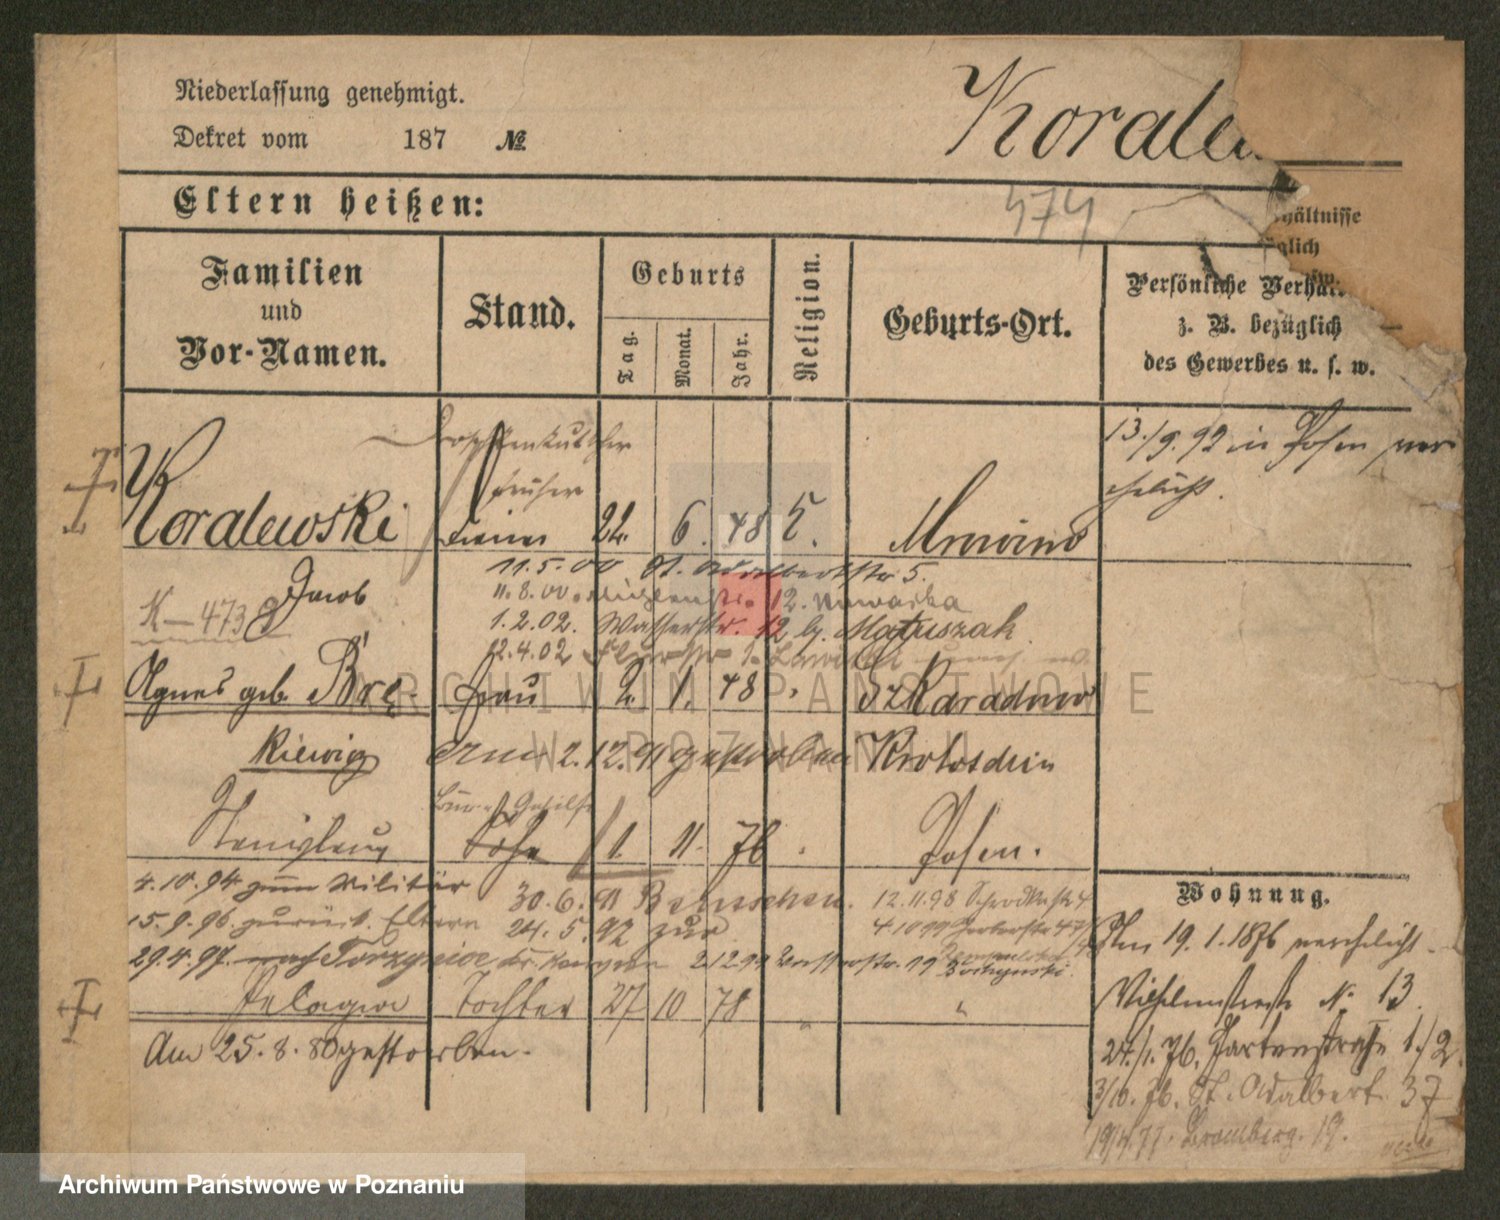 Niederlassung genehmigt.
Dekret vom 187 №
Korale
Eltern heißen:
474
hältnisse
glich
w.
Familien
und
Vor-Namen.
Stand.
Geburts
Tag.
Monat.
Jahr.
Religion.
Geburts-Ort.
Persönliche Verhäl
z. B. bezüglich
des Gewerbes u. s. w.
13./9. 92 in Posen ver
ehelicht.
Droschkenkutscher
früher
Koralewski
24. 6. 48
Mrowino
Jacob
11.5.00 St. Adalbertstr 5.
K-473
11.8.00. Mühlenstr. 12. Nowaczka
1.2.02. Wasserstr. 12 b. Matuszak
12.4.02
Agnes geb. Brę-
Frau 2. 1. 48
Szkaradowo
kiewicz
am 2.12.91 gestorben
Krotoschin
Gehilfe
Stanislaus
Sohn 1. 11. 76
Posen.
4.10.94 zum Militär
30.6.91 Bentschen.
12.11.98
15.9.96. zurück. Eltern
24.5.92 zur
4.10.99 Gerberstr 47
29.4.97. nach
2.12.99 Wasserstr. 19
Pelagia Tochter 27 10 78 "
Am 25.8.80 gestorben.
Wohnung.
Am 19.1.1876 verehelicht
Wilhelmstraße N. 13.
24./1. 76. Gartenstraße 1./2.
3/10. 76. St. Adalbert. 37
19/4.77. Bromberg. 19.
Archiwum Państwowe w Poznaniu
ARCHIWUM PAŃSTWOWE
W POZNANIU